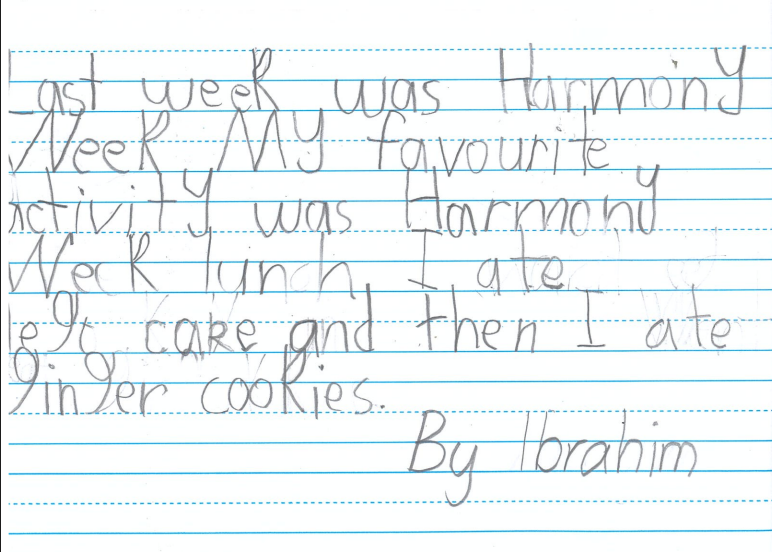 Last week was Harmony
Week My favourite
activity was Harmony
Week lunch I ate
cake and then I ate
ginger cookies.
By Ibrahim